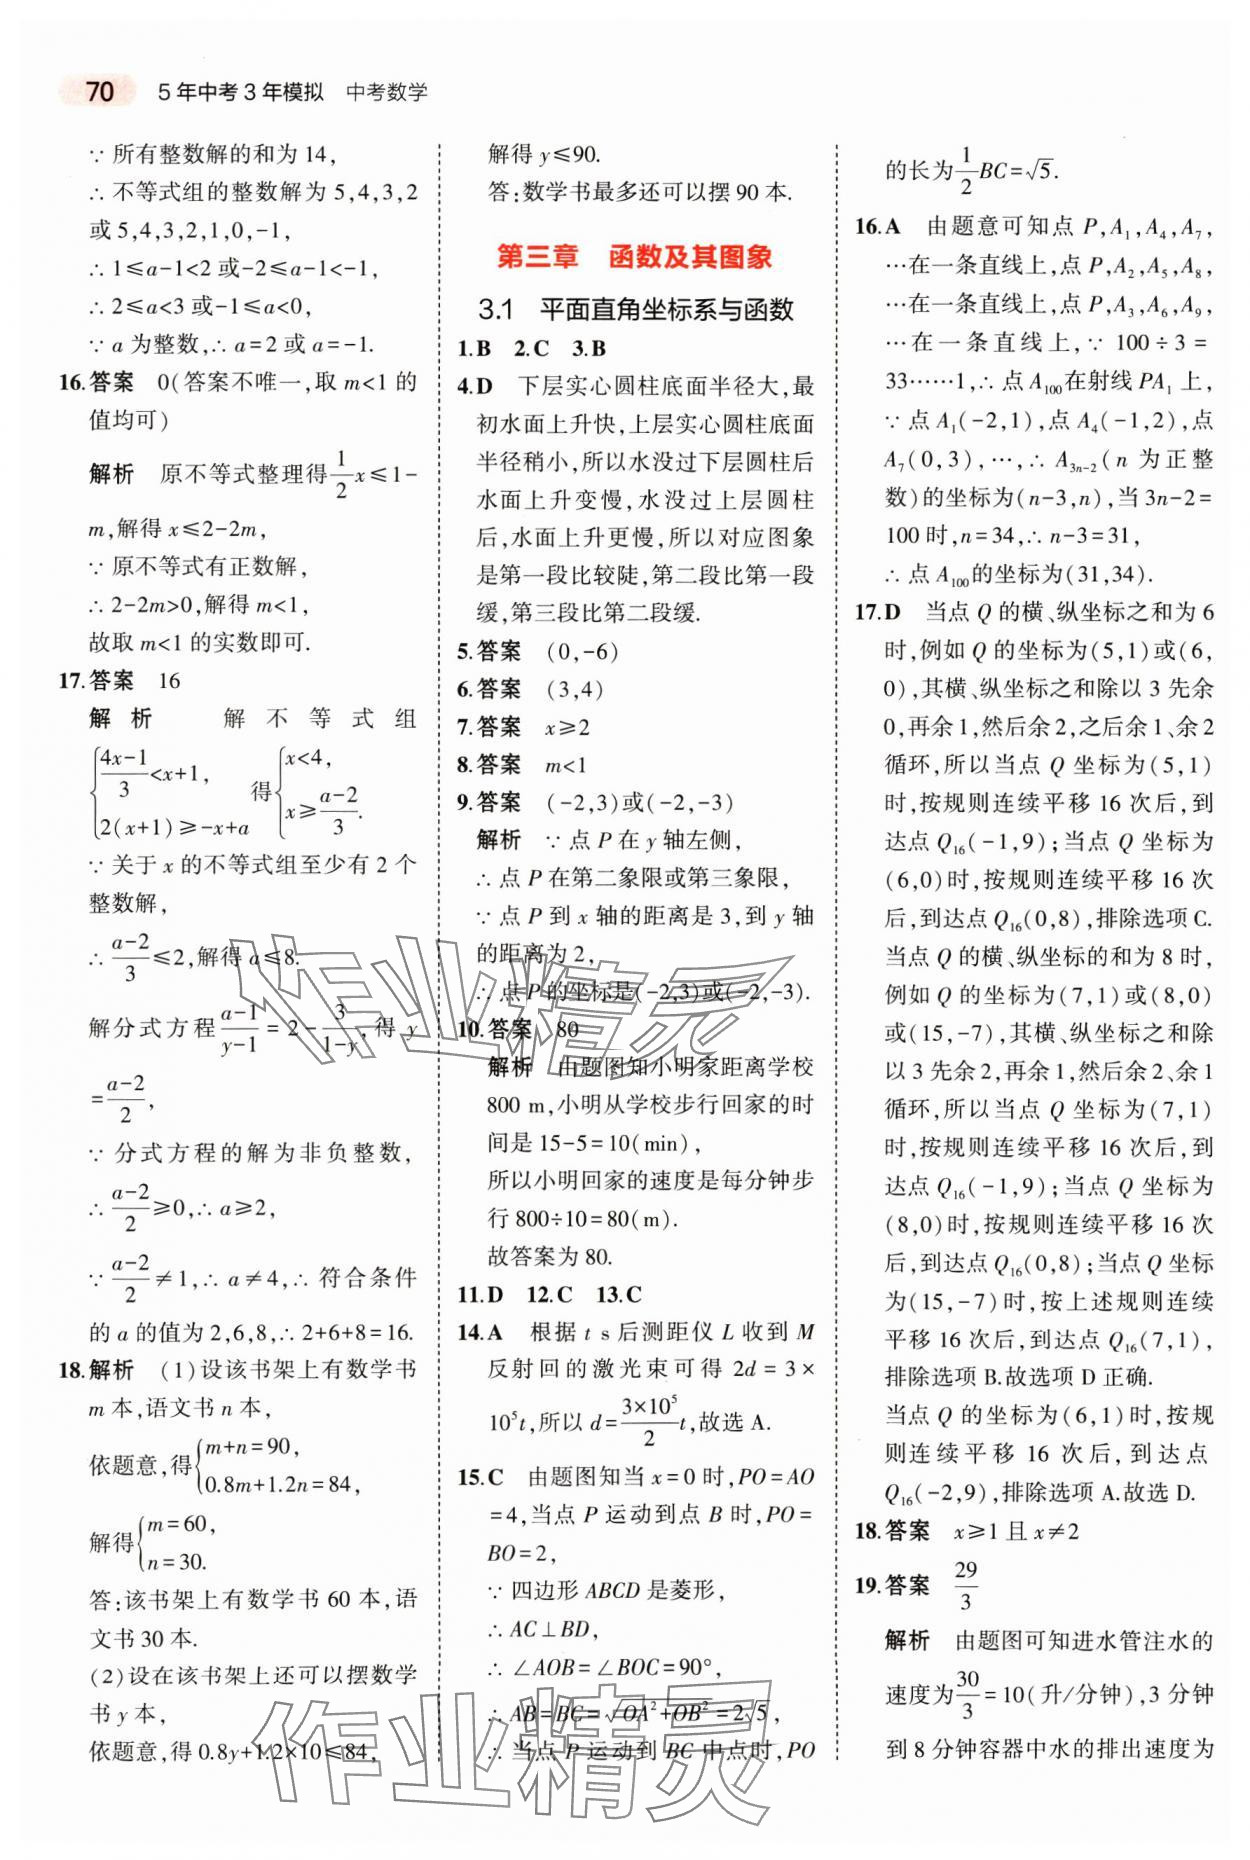 70 5年中考3年模拟 中考数学
∵所有整数解的和为14,
∴不等式组的整数解为5,4,3,2
或5,4,3,2,1,0,-1,
∴1≤a-1<2或-2≤a-1<-1,
∴2≤a<3或-1≤a<0,
∵a为整数,∴a=2或a=-1.
16.答案 0(答案不唯一,取m<1的
值均可)
解析 原不等式整理得1/2x≤1-
m,解得x≤2-2m,
∵原不等式有正数解,
∴2-2m>0,解得m<1,
故取m<1的实数即可.
17.答案 16
解析 解不等式组
{(4x-1)/3<x+1, 2(x+1)≥-x+a 得{x<4, x≥(a-2)/3.
∵关于x的不等式组至少有2个
整数解,
∴(a-2)/3≤2,解得a≤8.
解分式方程(a-1)/(y-1)=2-3/(1-y),得y
=(a-2)/2,
∵分式方程的解为非负整数,
∴(a-2)/2≥0,∴a≥2,
∵(a-2)/2≠1,∴a≠4,∴符合条件
的a的值为2,6,8,∴2+6+8=16.
18.解析 (1)设该书架上有数学书
m本,语文书n本,
依题意,得{m+n=90, 0.8m+1.2n=84,
解得{m=60, n=30.
答:该书架上有数学书60本,语
文书30本.
(2)设在该书架上还可以摆数学
书y本,
依题意,得0.8y+1.2×10≤84,
解得y≤90.
答:数学书最多还可以摆90本.
第三章 函数及其图象
3.1 平面直角坐标系与函数
1.B 2.C 3.B
4.D 下层实心圆柱底面半径大,最
初水面上升快,上层实心圆柱底面
半径稍小,所以水没过下层圆柱后
水面上升变慢,水没过上层圆柱
后,水面上升更慢,所以对应图象
是第一段比较陡,第二段比第一段
缓,第三段比第二段缓.
5.答案 (0,-6)
6.答案 (3,4)
7.答案 x≥2
8.答案 m<1
9.答案 (-2,3)或(-2,-3)
解析 ∵点P在y轴左侧,
∴点P在第二象限或第三象限,
∵点P到x轴的距离是3,到y轴
的距离为2,
∴点P的坐标是(-2,3)或(-2,-3).
10.答案 80
解析 由题图知小明家距离学校
800 m,小明从学校步行回家的时
间是15-5=10(min),
所以小明回家的速度是每分钟步
行800÷10=80(m).
故答案为80.
11.D 12.C 13.C
14.A 根据t s后测距仪L收到M
反射回的激光束可得2d=3×
10⁵t,所以d=(3×10⁵)/2 t,故选A.
15.C 由题图知当x=0时,PO=AO
=4,当点P运动到点B时,PO=
BO=2,
∵四边形ABCD是菱形,
∴AC⊥BD,
∴∠AOB=∠BOC=90°,
∴AB=BC=√(OA²+OB²)=2√5,
∴当点P运动到BC中点时,PO
的长为1/2BC=√5.
16.A 由题意可知点P,A₁,A₄,A₇,
…在一条直线上,点P,A₂,A₅,A₈,
…在一条直线上,点P,A₃,A₆,A₉,
…在一条直线上,∵100÷3=
33……1,∴点A₁₀₀在射线PA₁上,
∵点A₁(-2,1),点A₄(-1,2),点
A₇(0,3),…,∴A₃ₙ₋₂(n为正整
数)的坐标为(n-3,n),当3n-2=
100时,n=34,∴n-3=31,
∴点A₁₀₀的坐标为(31,34).
17.D 当点Q的横、纵坐标之和为6
时,例如Q的坐标为(5,1)或(6,
0),其横、纵坐标之和除以3先余
0,再余1,然后余2,之后余1、余2
循环,所以当点Q坐标为(5,1)
时,按规则连续平移16次后,到
达点Q₁₆(-1,9);当点Q坐标为
(6,0)时,按规则连续平移16次
后,到达点Q₁₆(0,8),排除选项C.
当点Q的横、纵坐标的和为8时,
例如Q的坐标为(7,1)或(8,0)
或(15,-7),其横、纵坐标之和除
以3先余2,再余1,然后余2、余1
循环,所以当点Q坐标为(7,1)
时,按规则连续平移16次后,到
达点Q₁₆(-1,9);当点Q坐标为
(8,0)时,按规则连续平移16次
后,到达点Q₁₆(0,8);当点Q坐标
为(15,-7)时,按上述规则连续
平移16次后,到达点Q₁₆(7,1),
排除选项B.故选项D正确.
当点Q的坐标为(6,1)时,按规
则连续平移16次后,到达点
Q₁₆(-2,9),排除选项A.故选D.
18.答案 x≥1且x≠2
19.答案 29/3
解析 由题图可知进水管注水的
速度为30/3=10(升/分钟),3分钟
到8分钟容器中水的排出速度为
作业精灵
作业精灵